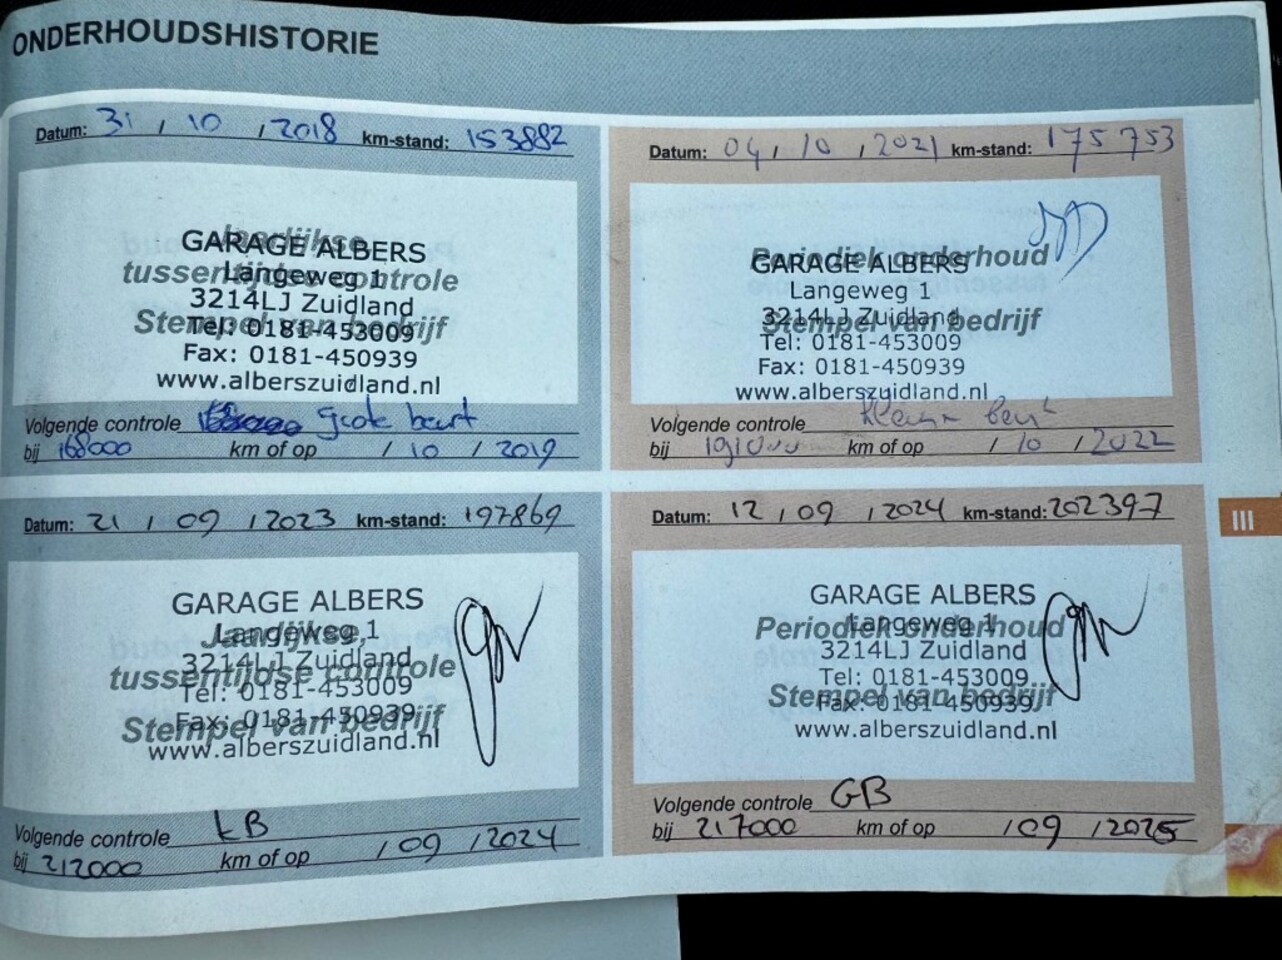 ONDERHOUDSHISTORIE
Datum: 31 / 10 / 2018 km-stand: 153882
Jaarlijkse
GARAGE ALBERS
tussentijdse controle
Langeweg 1
3214LJ Zuidland
Stempel van bedrijf
Tel: 0181-453009
Fax: 0181-450939
www.alberszuidland.nl
Volgende controle grote beurt
bij 168000 km of op / 10 / 2019
Datum: 04 / 10 / 2021 km-stand: 175753
Periodiek onderhoud
GARAGE ALBERS
Langeweg 1
3214LJ Zuidland
Stempel van bedrijf
Tel: 0181-453009
Fax: 0181-450939
www.alberszuidland.nl
Volgende controle kleine beurt
bij 191000 km of op / 10 / 2022
Datum: 21 / 09 / 2023 km-stand: 197869
GARAGE ALBERS
Langeweg 1
Jaarlijkse,
3214LJ Zuidland
tussentijdse controle
Tel: 0181-453009
Fax: 0181-450939
Stempel van bedrijf
www.alberszuidland.nl
Volgende controle KB
bij 212000 km of op / 09 / 2024
Datum: 12 / 09 / 2024 km-stand: 202397
GARAGE ALBERS
Langeweg 1
Periodiek onderhoud
3214LJ Zuidland
Tel: 0181-453009
Stempel van bedrijf
Fax: 0181-450939
www.alberszuidland.nl
Volgende controle GB
bij 217000 km of op / 09 / 2025
III